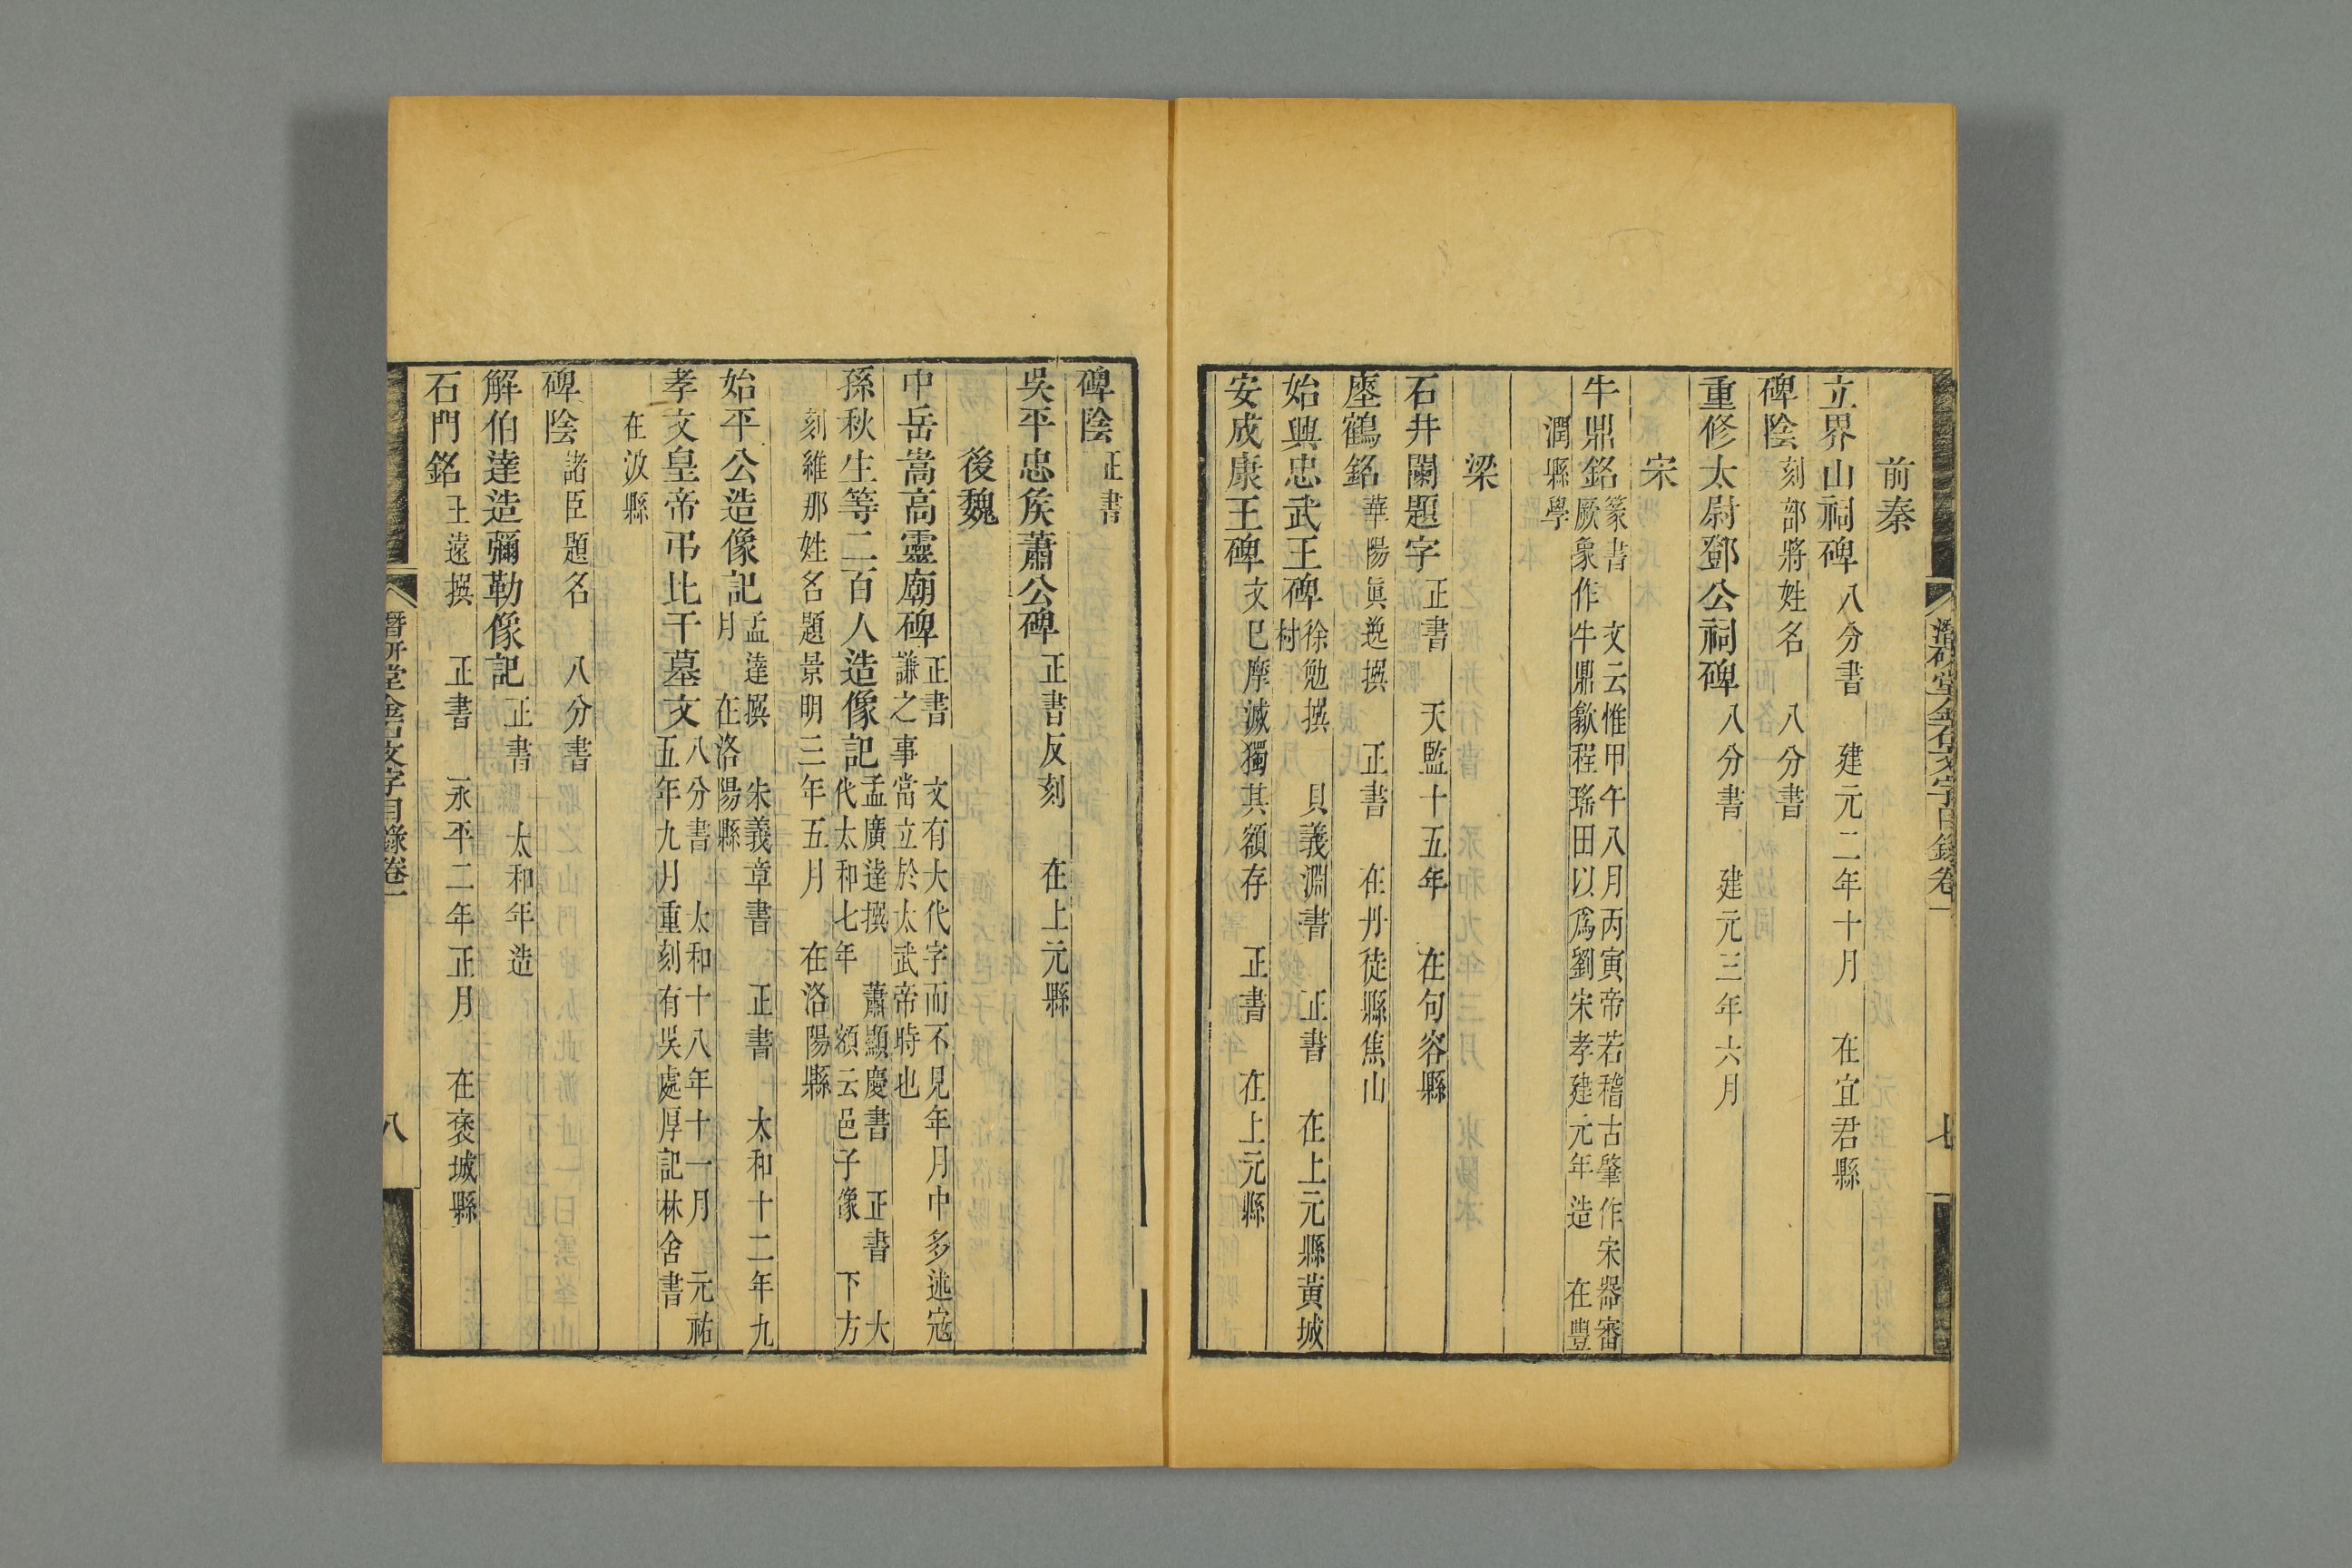 潛研堂金石文字目錄卷一
七
前秦
立界山祠碑 八分書 建元二年十月 在宜君縣
碑陰 刻部將姓名 八分書
重修太尉鄧公祠碑 八分書 建元三年六月
宋
牛鼎銘 篆書 文云惟甲午八月丙寅帝若稽古肇作宋器審
厥象作牛鼎歙程瑤田以爲劉宋孝建元年造 在豐
潤縣學
梁
石井闌題字 正書 天監十五年 在句容縣
瘞鶴銘 華陽眞逸撰 正書 在丹徒縣焦山
始興忠武王碑 徐勉撰 貝義淵書 正書 在上元縣黃城
村
安成康王碑 文已摩滅獨其額存 正書 在上元縣
碑陰 正書
吳平忠矦蕭公碑 正書反刻 在上元縣
後魏
中岳嵩高靈廟碑 正書 文有大代字而不見年月中多述寇
謙之事當立於太武帝時也
孫秋生等二百人造像記 孟廣達撰 蕭顯慶書 正書 大
代太和七年 額云邑子像 下方
刻維那姓名題景明三年五月 在洛陽縣
始平公造像記 孟達撰 朱義章書 正書 太和十二年九
月 在洛陽縣
孝文皇帝弔比干墓文 八分書 太和十八年十一月 元祐
五年九月重刻有吳處厚記林舍書
在汲縣
碑陰 諸臣題名 八分書
解伯達造彌勒像記 正書 太和年造
石門銘 王遠撰 正書 永平二年正月 在褒城縣
潛研堂金石文字目錄卷一
八